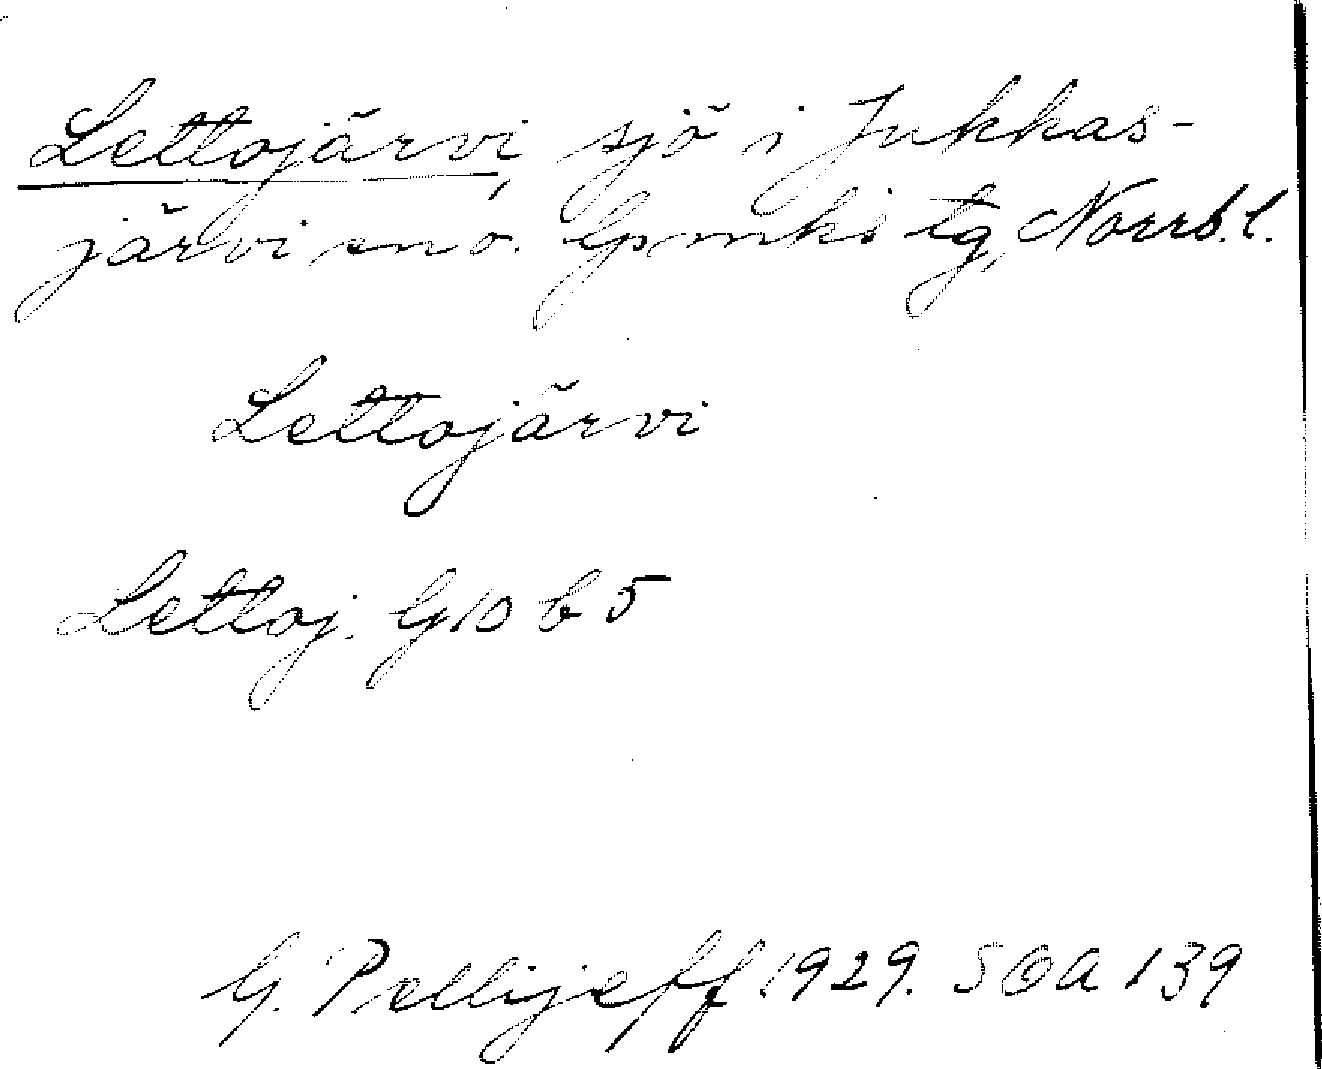 Lettojärvi, sjö i Jukkas-
järvi sno. Gpmks tg, Norrb. l.
Lettojärvi
Lettoj. G10 b 5
G. Pellijeff. 1929. SOA 139